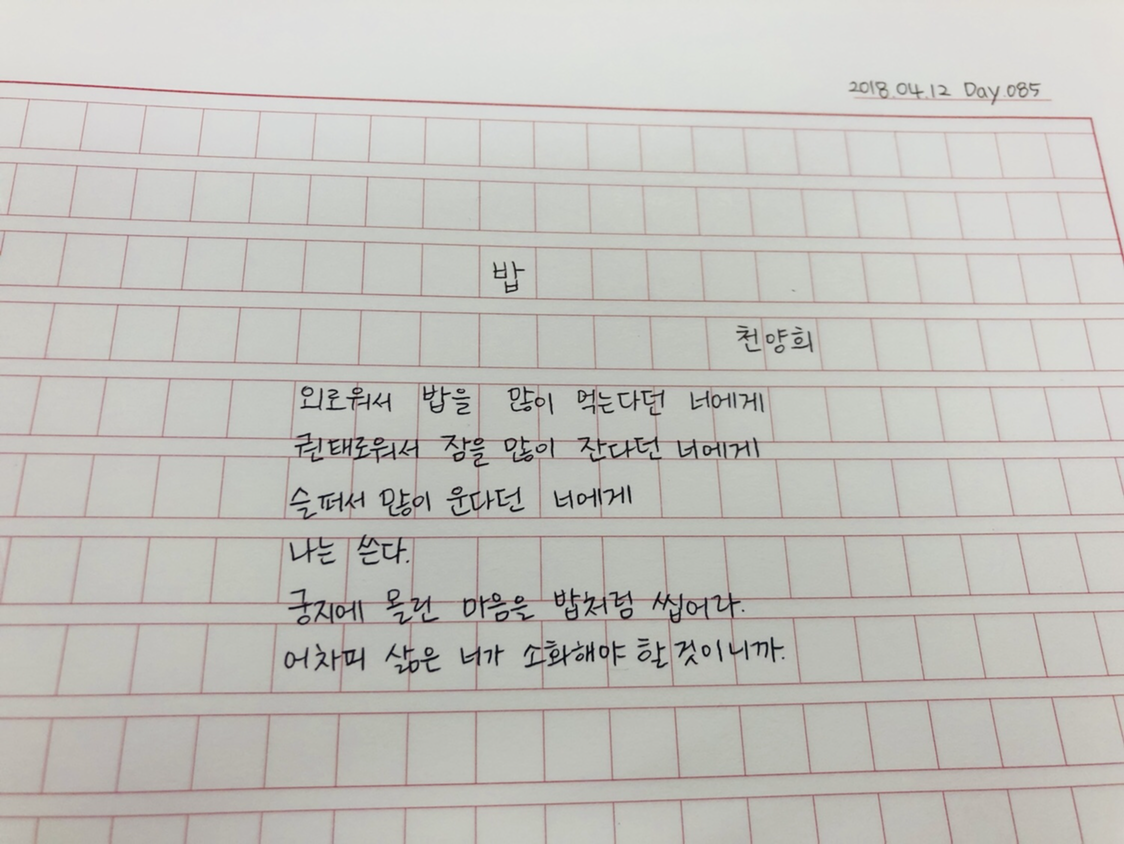 2018.04.12 Day.085
밥
천양희
외로워서 밥을 많이 먹는다던 너에게
권태로워서 잠을 많이 잔다던 너에게
슬퍼서 많이 운다던 너에게
나는 쓴다.
궁지에 몰린 마음을 밥처럼 씹어라.
어차피 삶은 너가 소화해야 할 것이니까.